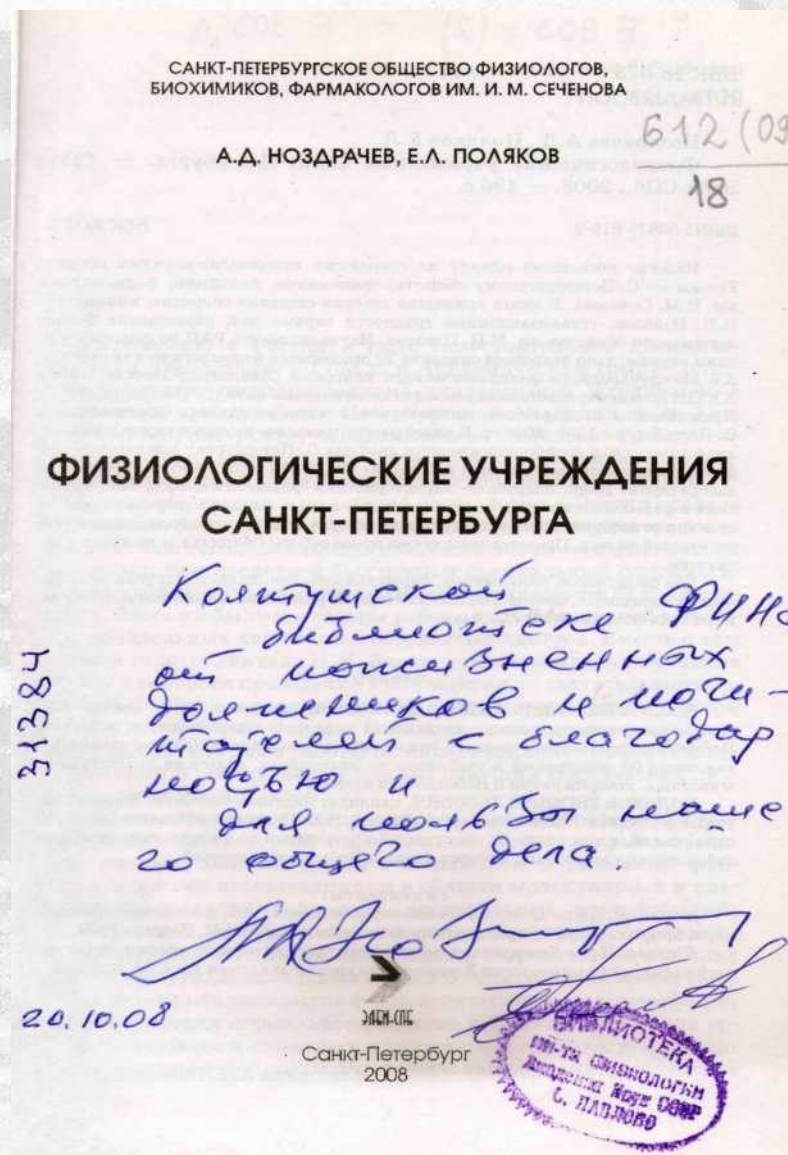 САНКТ-ПЕТЕРБУРГСКОЕ ОБЩЕСТВО ФИЗИОЛОГОВ,
БИОХИМИКОВ, ФАРМАКОЛОГОВ ИМ. И. М. СЕЧЕНОВА
612 (09
18
А.Д. НОЗДРАЧЕВ, Е.Л. ПОЛЯКОВ
ФИЗИОЛОГИЧЕСКИЕ УЧРЕЖДЕНИЯ
САНКТ-ПЕТЕРБУРГА
Колтушской
библиотеке ФИН
от пожизненных
должников и почи-
тателей с благодар
ностью и
для пользы наше
го общего дела.
31384
20.10.08
ЭДЕМ-СПб
Санкт-Петербург
2008
БИБЛИОТЕКА
ин-та физиологии
Академии Наук СССР
С. ПАВЛОВО